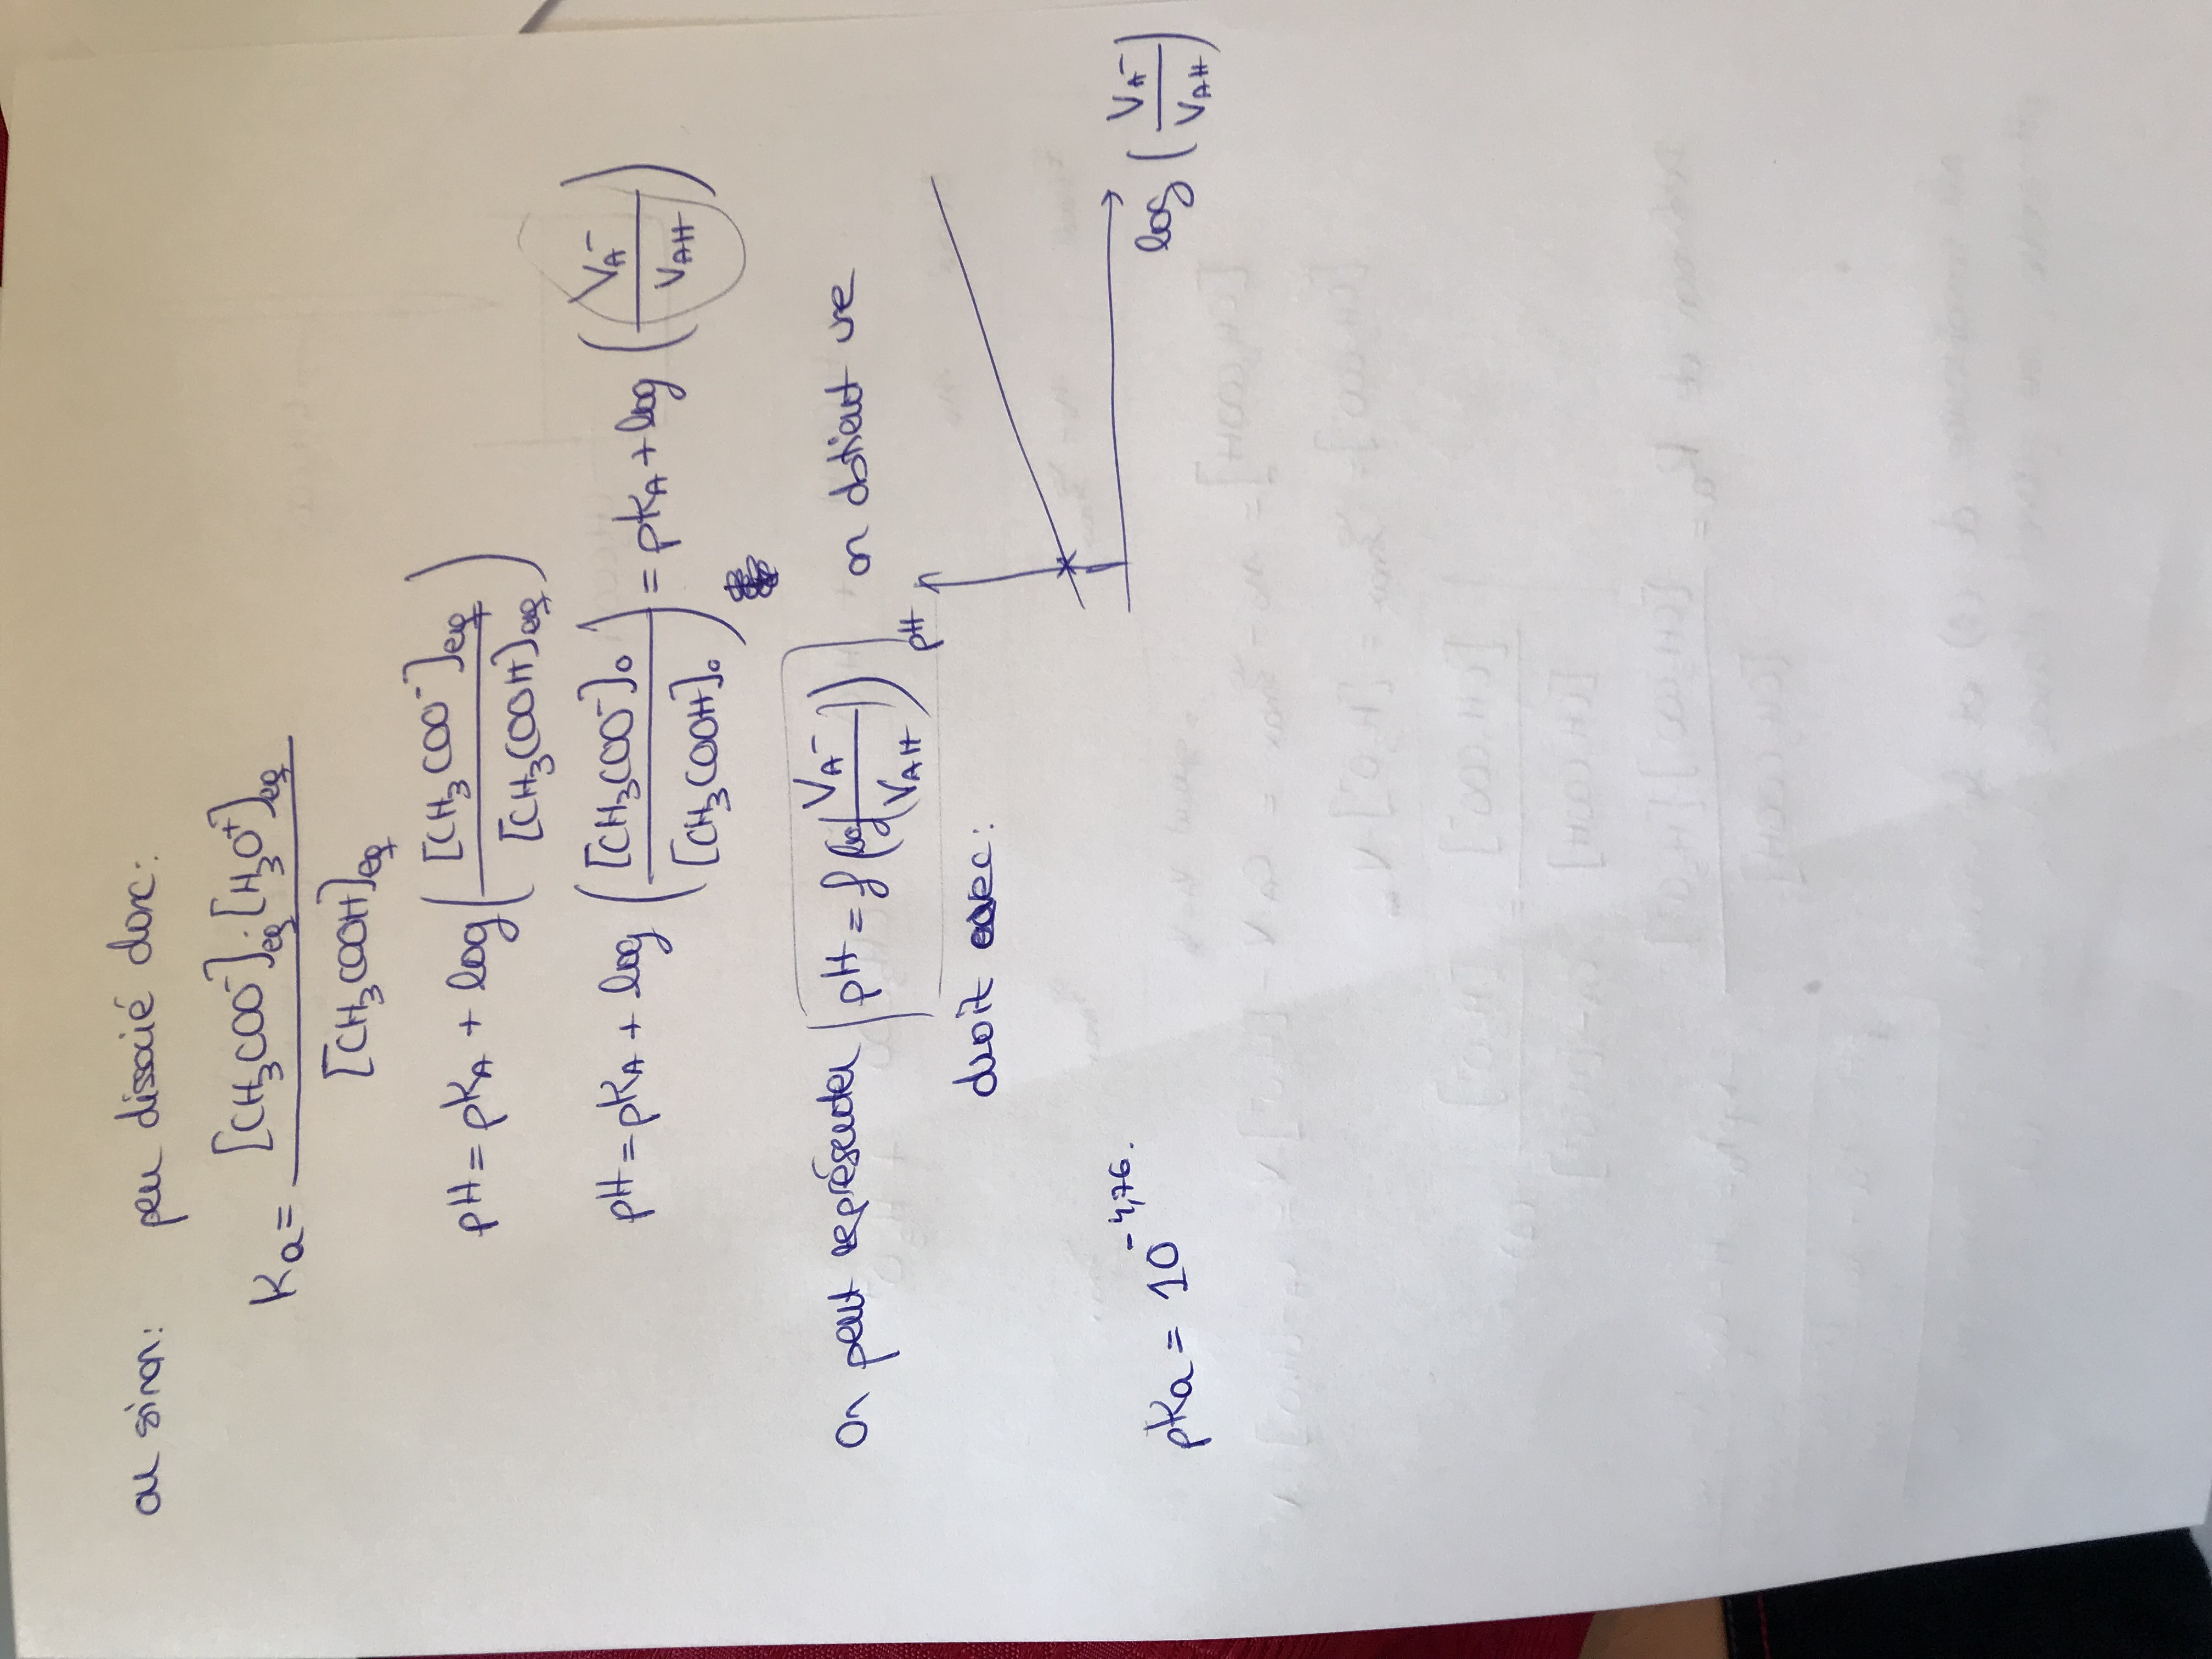 ou sinon: peu dissocié donc:
Ka = [CH₃COO⁻]eq · [H₃O⁺]eq / [CH₃COOH]eq
pH = pKA + log ( [CH₃COO⁻]eq / [CH₃COOH]eq )
pH = pKA + log ( [CH₃COO⁻]₀ / [CH₃COOH]₀ ) = pKA + log ( VA⁻ / VAH )
On peut représenter pH = f (log ( VA⁻ / VAH )) on obtient une
droit avec:
pH
log ( VA⁻ / VAH )
pKa = 10^-4,76.